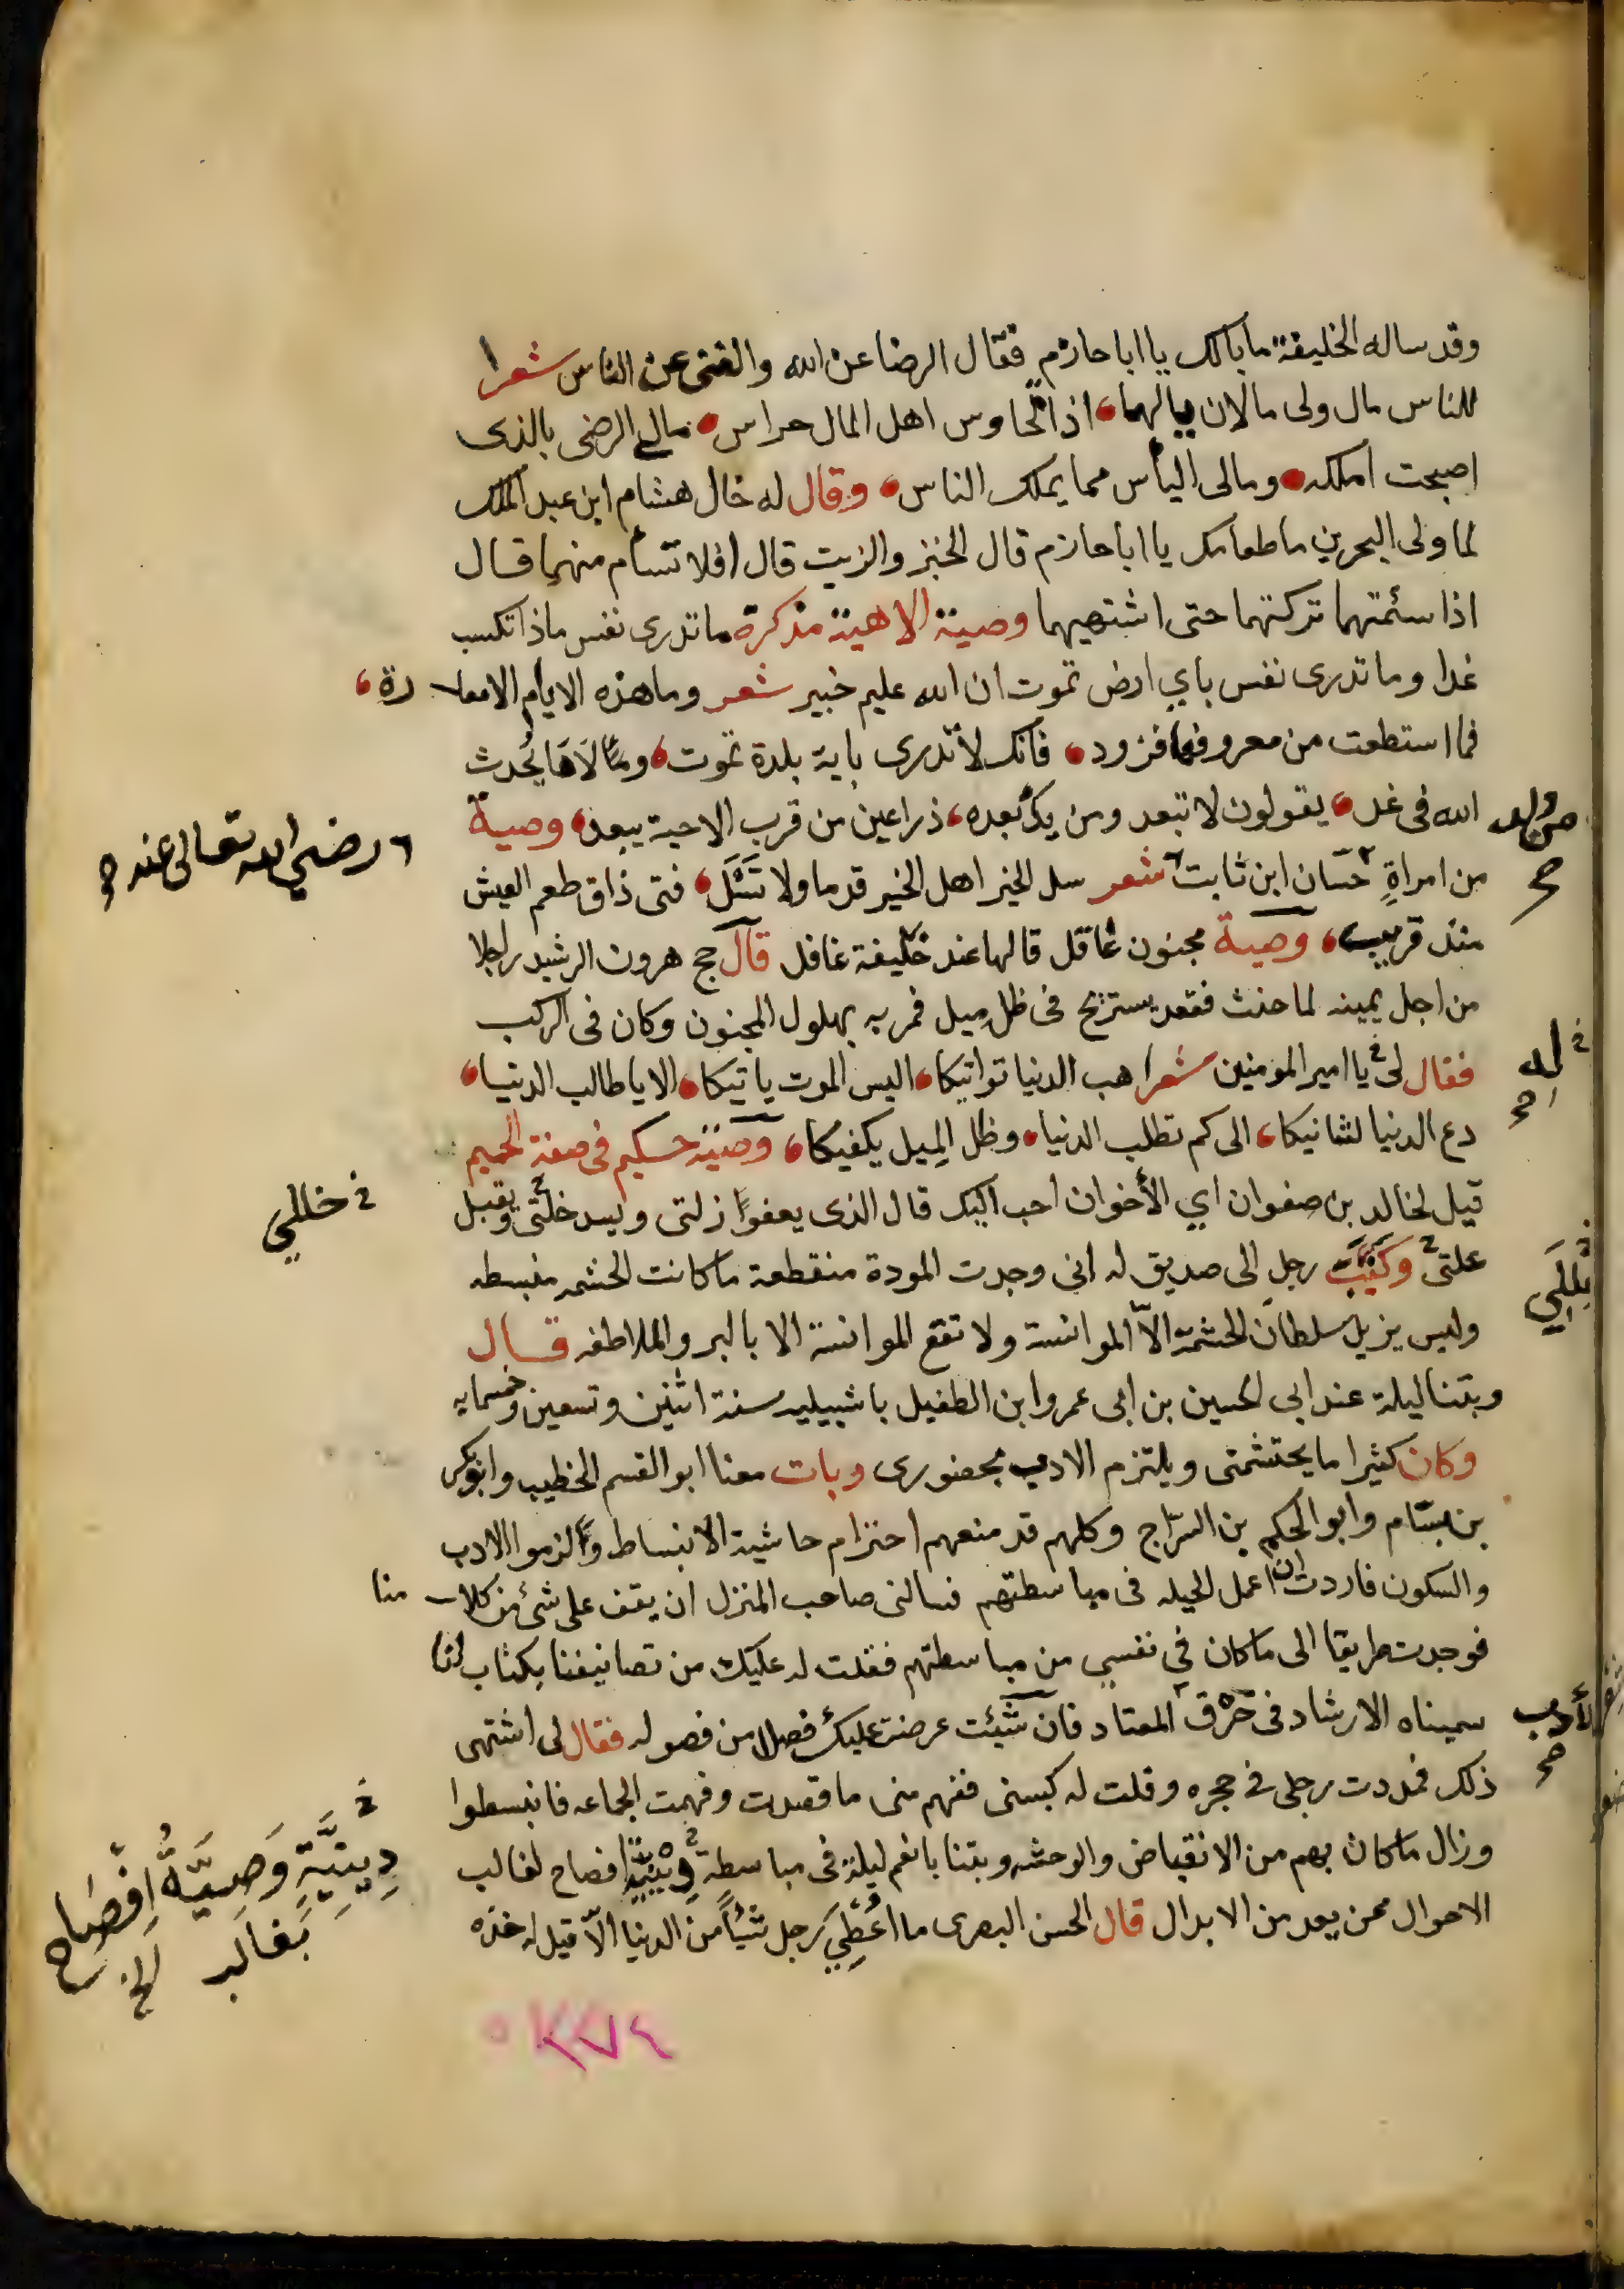 وقد ساله الخليفة ما بالك يا ابا حازم فقال الرضا عن الله والغنى عن الناس شعرا
للناس مال ولى مالان مالهما اذا تحاوس اهل المال حراس مالي الرضى بالذى
اصبحت املكه ومالى اليأس مما يملك الناس وقال له خال هشام ابن عبد الملك
لما ولى البحرين ما طعامك يا ابا حازم قال الخبز والزيت قال افلا تسأم منهما قال
اذا سئمتهما تركتهما حتى اشتهيهما وصية الاهية مذكرة ما تدرى نفس ماذا تكسب
غدا وما تدرى نفس باي ارض تموت ان الله عليم خبير شعر وما هذه الايام الا معا رة
فما استطعت من معروفها فزود فانك لا تدرى باية بلدة تموت وما يحدث
الله فى غد يقولون لا تبعد ومن يك بعده ذراعين من قرب الاحبة يبعد وصية
رضي الله تعالى عنه
من امراةٍ حسّان ابن ثابت شعر سل الخير اهل الخير قدما ولا تسَل فتى ذاق طعم العيش
منذ قريب وصية مجنون عاقل قالها عند خليفة غافل قال حج هرون الرشيد راجلا
من اجل يمينه لما حنث فقعد يستريح فى ظل ميل فمر به بهلول المجنون وكان فى الركب
له
فقال لى يا امير المومنين شعرا هب الدنيا تواتيكا اليس الموت ياتيكا الا يا طالب الدنيا
دع الدنيا لشانيكا الى كم تطلب الدنيا وظل الميل يكفيكا وصية حكيم فى صفة الحميم
خللي
قيل لخالد بن صفوان اي الأخوان احب اليك قال الذى يعفوا زلتى ويسد خلتى ويقبل
عللي
علتى وكتب رجل الى صديق له انى وجدت المودة منقطعة ما كانت الحشمه منبسطه
وليس يزيل سلطان الحشمة الاّ الموانسة ولا تقع الموانسة الا بالبر والملاطفه قال
وبتنا ليلة عند ابى الحسين بن ابى عمرو ابن الطفيل باشبيليه سنة اثنين وتسعين وخمسمايه
وكان كثيرا ما يحتشمنى ويلتزم الادب بحضورى وبات معنا ابو القسم الخطيب وابو بكر
بن سام وابو الحكم بن السرّاج وكلهم قد منعهم احترام حاشية الانبساط والزموا الادب
والسكون فاردت ان اعمل الحيله فى مباسطتهم فسالنى صاحب المنزل ان يقف على شئ من كلا منا
فوجدت طريقا الى ما كان في نفسي من مباسطتهم فقلت له عليك من تصانيفنا بكتاب لنا
الأدب
سميناه الارشاد فى خرق المعتاد فان شئت عرضت عليك فصلا من فصوله فقال لى اشتهى
ذلك فمددت رجلى فى حجره وقلت له كبسنى ففهم منى ما قصدت وفهمت الجماعه فانبسطوا
وزال ما كان بهم من الانقباض والوحشه وبتنا بانعم ليلة فى مباسطة افصاح لغالب
دِينِيَّةٍ وَصِيَّةُ اِفْصَاح بغالب الخ
الاحوال ممن يعد من الابدال قال الحسن البصرى ما اعُطِيَ رجل شيئا من الدنيا الاّ قيل له خذه